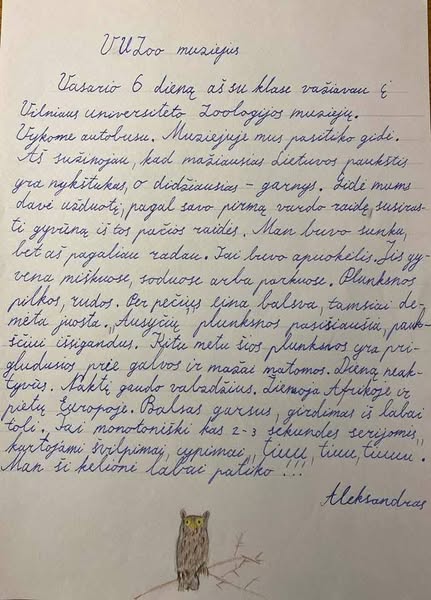 VU Zoo muziejus
Vasario 6 dieną aš su klase važiavau į
Vilniaus universiteto Zoologijos muziejų.
Vykome autobusu. Muziejuje mus pasitiko gidė.
Aš sužinojau, kad mažiausias Lietuvos paukštis
yra nykštukas, o didžiausias - garnys. Gidė mums
davė užduotį, pagal savo pirmą vardo raidę, susiras-
ti gyvūną iš tos pačios raidės. Man buvo sunku,
bet aš pagaliau radau. Tai buvo apuokėlis. Jis gy-
vena miškuose, soduose arba parkuose. Plunksnos
pilkos, rudos. Per pečius eina balsva, tamsiai dė-
mėta juosta. „Ausyčių" plunksnos pasišiaušia, pauk-
ščiui išsigandus. Kitu metu šios plunksnos yra pri-
gludusios prie galvos ir mažai matomos. Dieną neak-
tyvūs. Naktį gaudo vabzdžius. Žiemoja Afrikoje ir
pietų Europoje. Balsas garsus, girdimas iš labai
toli. Tai monotoniški kas 2-3 sekundes serijomis
kartojami švilpimai, cypimai „tiuu, tiuu, tiuuu.
Man ši kelionė labai patiko !!!
Aleksandras